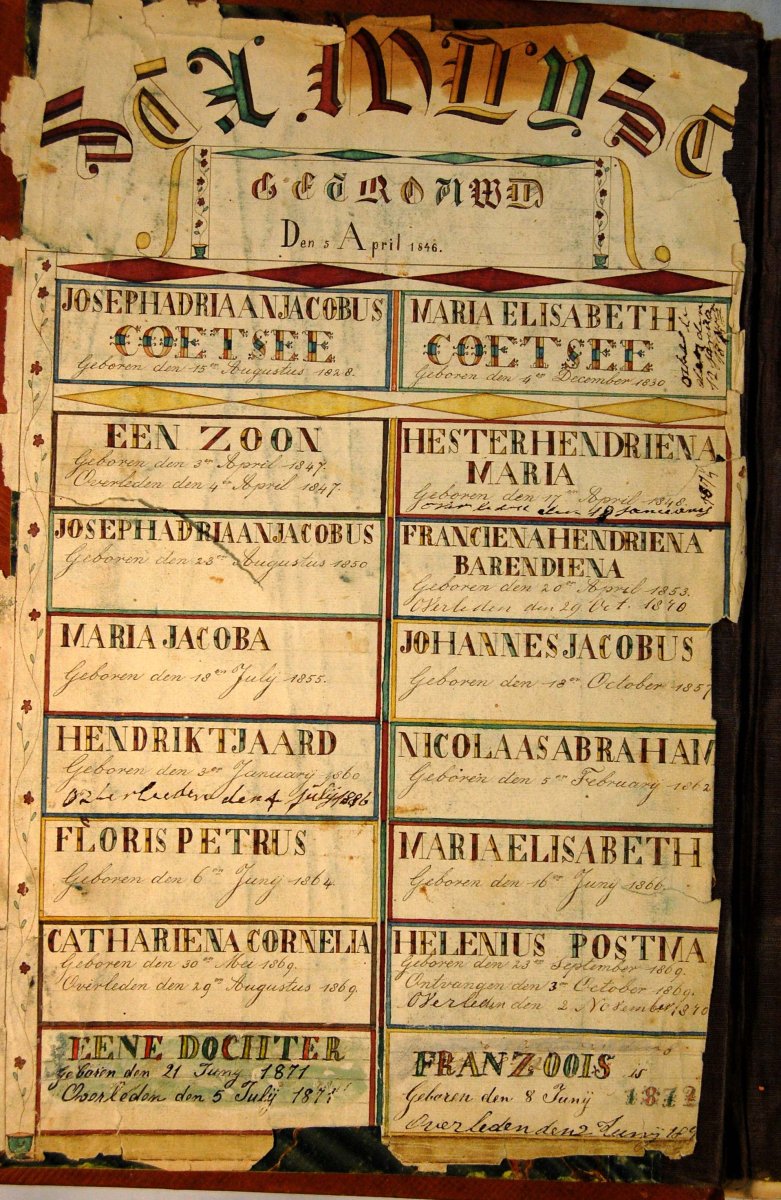 GETROUWD
Den 5 April 1846.
JOSEPH ADRIAAN JACOBUS
COETSEE
Geboren den 15en Augustus 1828.
MARIA ELISABETH
COETSEE
Geboren den 4en December 1830
EEN ZOON
Geboren den 3en April 1847.
Overleden den 4en April 1847.
HESTER HENDRIENA
MARIA
Geboren den 17en April 1848.
JOSEPH ADRIAAN JACOBUS
Geboren den 23en Augustus 1850
FRANCIENA HENDRIENA
BARENDIENA
Geboren den 20en April 1853.
OVerleden den 29 Oct. 1870
MARIA JACOBA
Geboren den 18en July 1855.
JOHANNES JACOBUS
Geboren den 18en October 1857
HENDRIK TJAARD
Geboren den 3en January 1860
den 4 july 1886
NICOLAAS ABRAHAM
Geboren den 5en February 1862
FLORIS PETRUS
Geboren den 6en Junij 1864.
MARIA ELISABETH
Geboren den 16en Junij 1866.
CATHARIENA CORNELIA
Geboren den 30en Mei 1869.
Overleden den 29en Augustus 1869.
HELENIUS POSTMA
Geboren den 23en September 1869.
Ontvangen den 3en October 1869.
OVerleden den 2 November 1870
EENE DOCHTER
Geboren den 21 Junij 1871
Overleden den 5 Julij
FRANZOOIS
Geboren den 8 Junij 1872
Overleden den 2 Junij